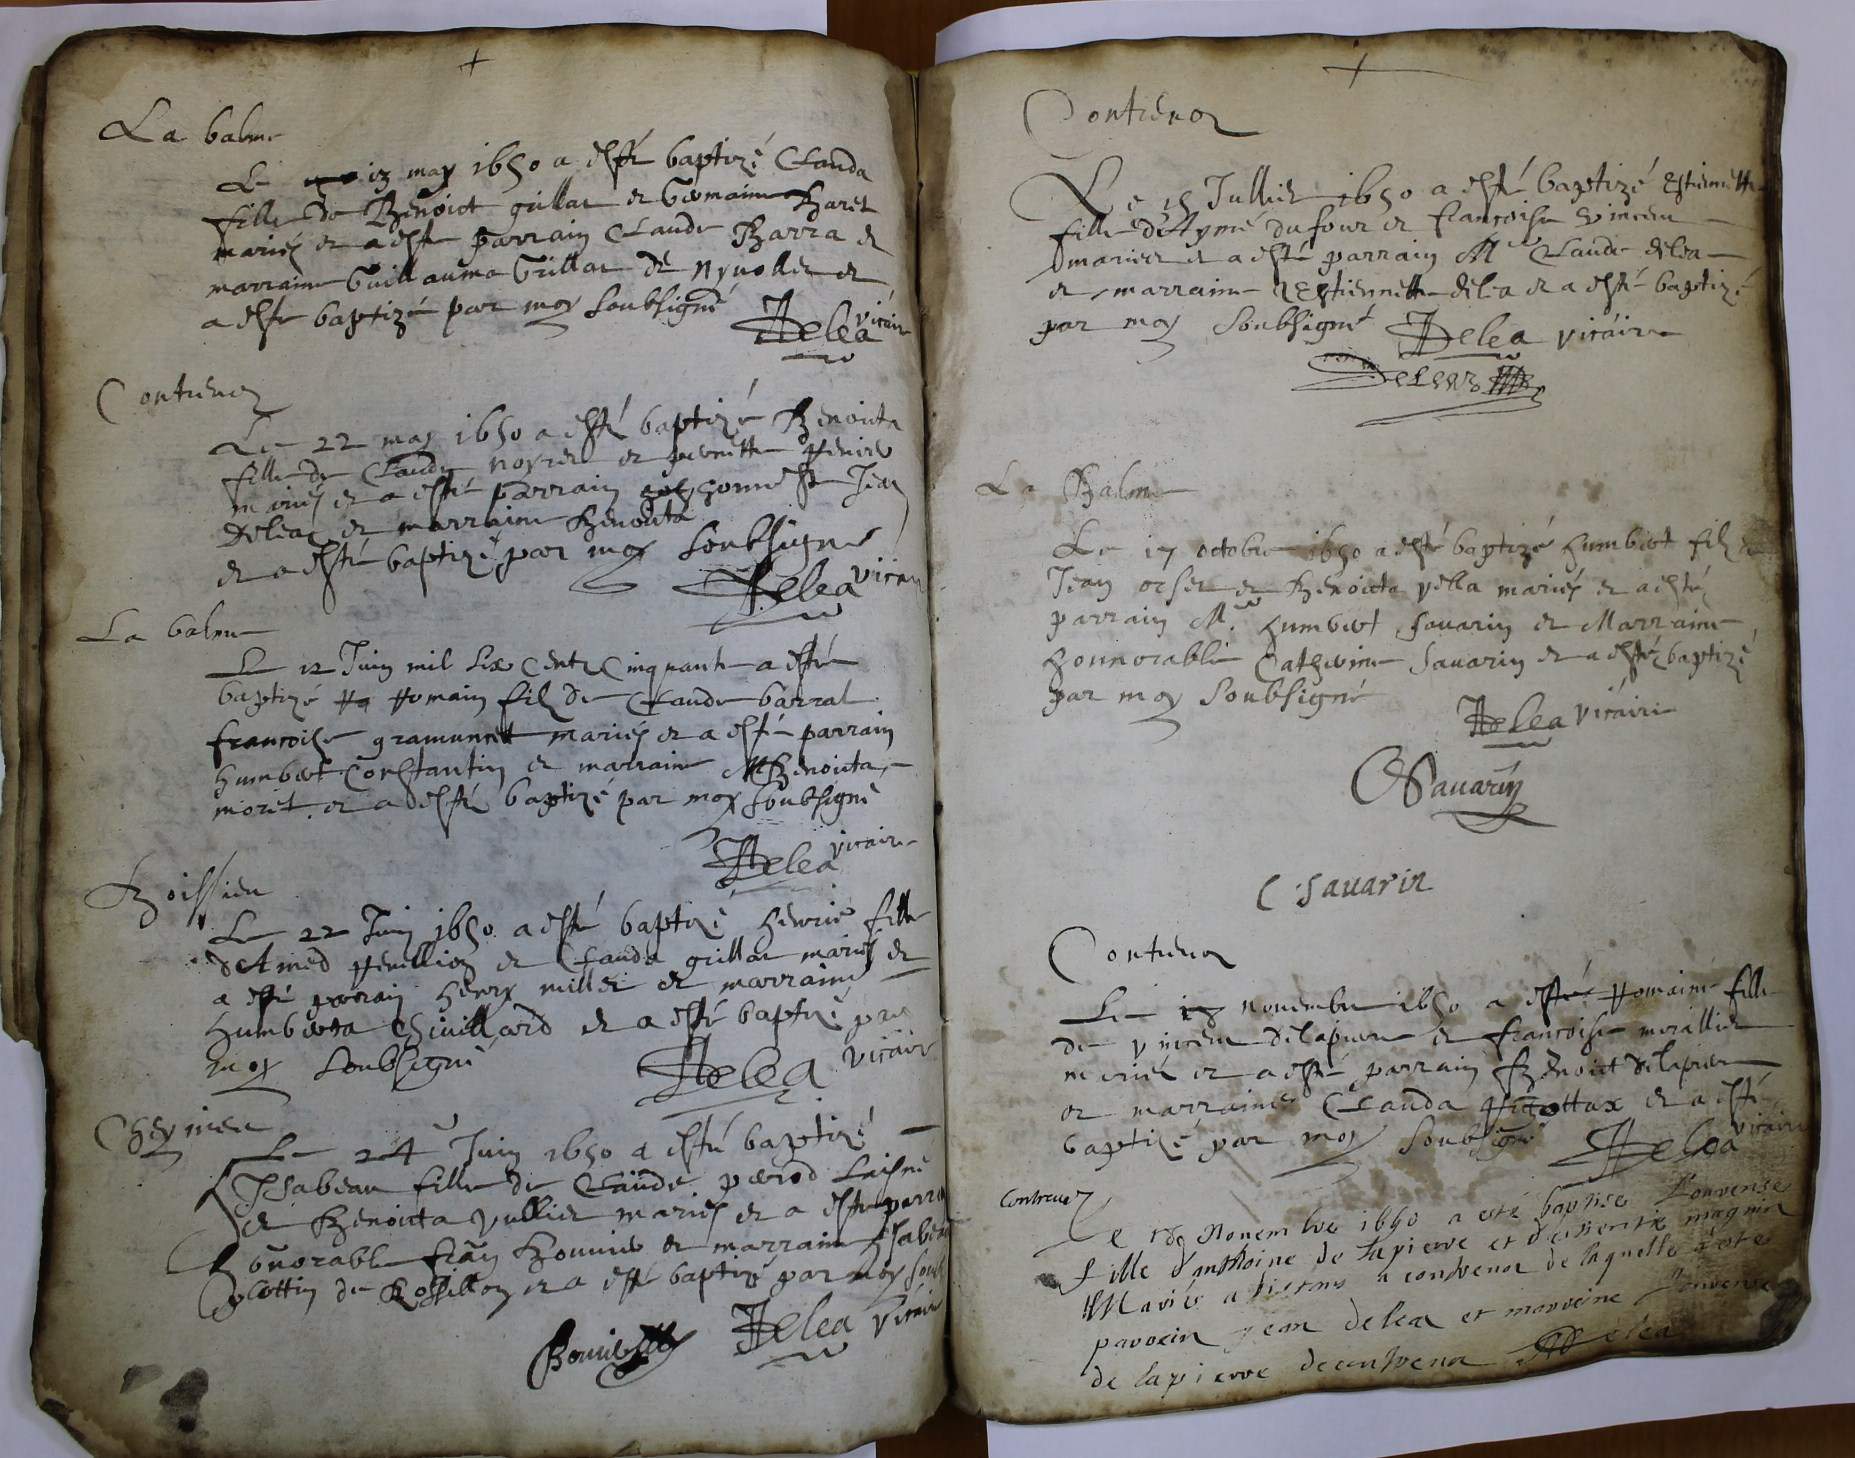 La balme
Le 13 may 1650 a esté baptizé Clauda
fille de Benoict grillat et Germaine Baret
mariés et a esté parrain Claude Barra et
marraine Guillauma Grillat de et
a esté baptizé par moy soubsigné
Delea vicaire
Contrevoz
Le 22 may 1650 a esté baptizé Benoicta
fille de Claude noyrel et pernette
mariés et a esté parrain honneste Jean
Delea et marraine Benoicta
et a esté baptizé par moy soubsigné
Delea vicaire
La balme
Le 12 Juin mil six Cents Cinquante a esté
baptizé Romain filz de Claude barral
francoise gramunet mariés et a esté parrain
humbert Constantin et marraine Benoicta
moret et a esté baptizé par moy soubsigné
Delea vicaire
Boissieu
Le 22 Juin 1650 a esté baptizé henrie fille
d'Amed et Clauda grillat mariés et
a esté parrain henry millet et marraine
humberta Chivillard et a esté baptizé par
moy soubsigné
Delea vicaire
Cheynieu
Le 24 Juin 1650 a esté baptizé
Ysabeau fille de Claude perrod Laisné
et Benoicta vullier mariés et a esté parrain
honorable et marraine Isabeau
Cottin de Rossillon et a esté baptizé par moy
Delea vicaire
Contrevoz
Le 15 Jullier 1650 a esté baptizé Estiennette
fille d'Aymé dufour et francoise vincent
mariés et a esté parrain Mr Claude delea
et marraine Estiennette delea et a esté baptizé
par moy soubsigné Delea vicaire
La Balme
Le 17 octobre 1650 a esté baptizé humbert filz de
Jean et Benoicta vella mariés et a esté
parrain Mre humbert savarin et Marraine
honnorable Catherine savarin et a esté baptizé
par moy soubsigné
Delea vicaire
Savarin
C Savarin
Contrevoz
Le 13 novembre 1650 a esté Romaine fille
de vincent delapierre et francoise morallier
mariés et a esté parrain Benoict delapierre
et marraine Clauda et a esté
baptizé par moy soubsigné Delea vicaire
Contrevoz
Le novembre 1650 a esté baptise Louvense
fille d'anthoine de lapierre et d'estiennette magnin
Mariés a contrevoz de laquelle a esté
parrein jean delea et marreine Louvense
de lapierre de contrevoz Delea